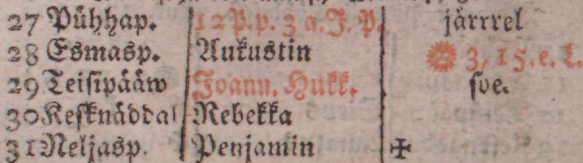 27 Pühhap. 12 P. p. 3 a. J. P. järrrel
28 Esmasp. Aukustin 3, 15. e. L.
29 Teisipääw Joann. Hukk. soe.
30 Kesknäddal Rebekka
31 Neljasp. Penjamin ✠